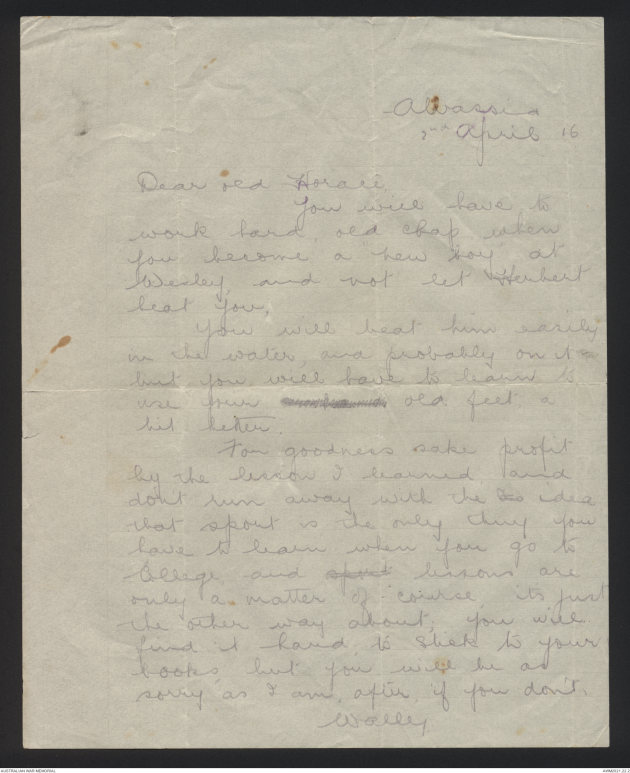 Alwassia
2nd April 16
Dear old Horace,
You will have to
work hard, old chap, when
you become a new boy at
Wesley, and not let Herbert
beat you.
You will beat him easily
in the water, and probably on it
but you will have to learn to
use your old feet a
bit better.
For goodness sake profit
by the lesson I learned and
dont run away with the idea
that sport is the only thing you
have to learn when you go to
College and sport lessons are
only a matter of course, its just
the other way about; you will
find it hard to stick to your
books, but you will be as
sorry as I am, after, if you don't.
Wally
AUSTRALIAN WAR MEMORIAL